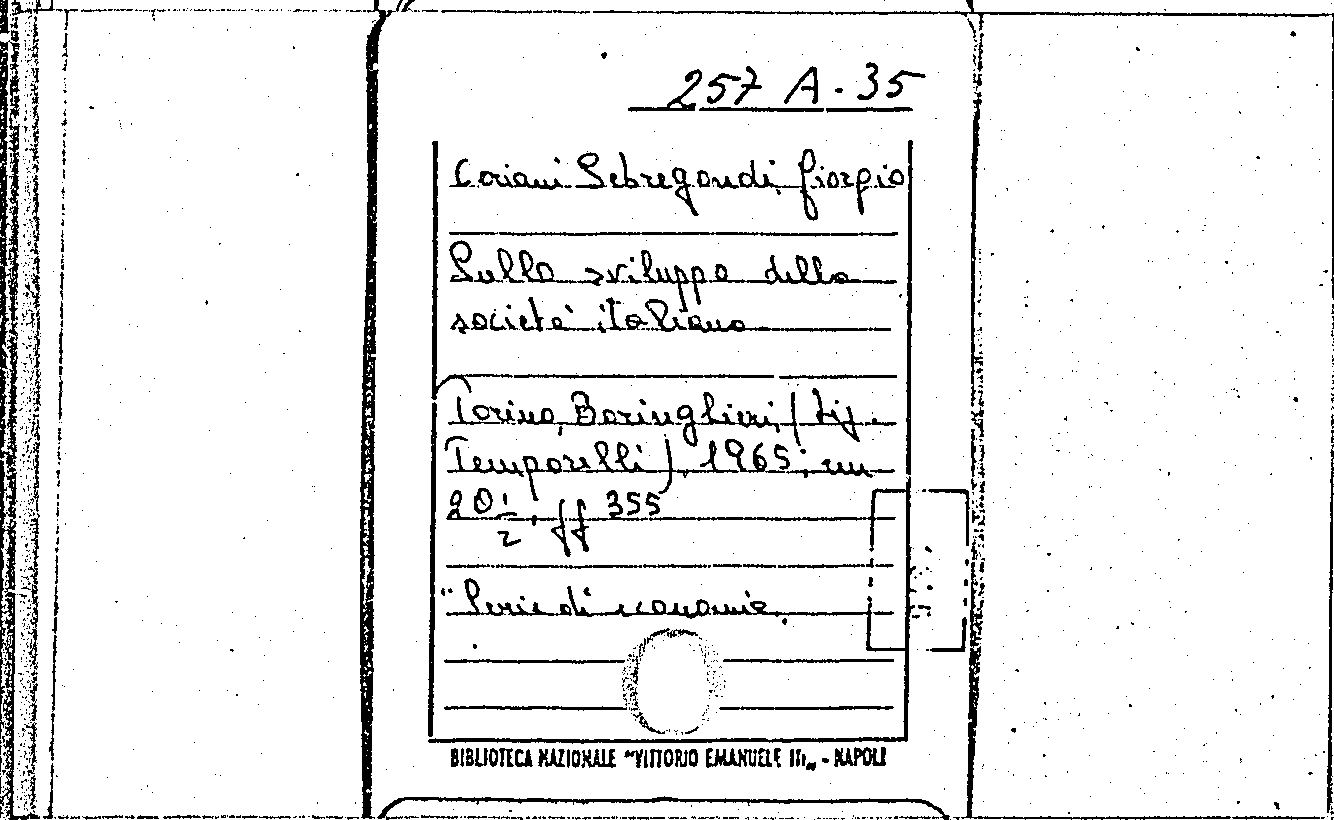 257 A. 35
Coriani Sebregondi, Giorgio
Sullo sviluppo della
società italiana
Torino, Boringhieri, (tip.
Temporelli), 1965; in
20½. ff 355
"Serie di economia
BIBLIOTECA NAZIONALE "VITTORIO EMANUELE III„ - NAPOLI